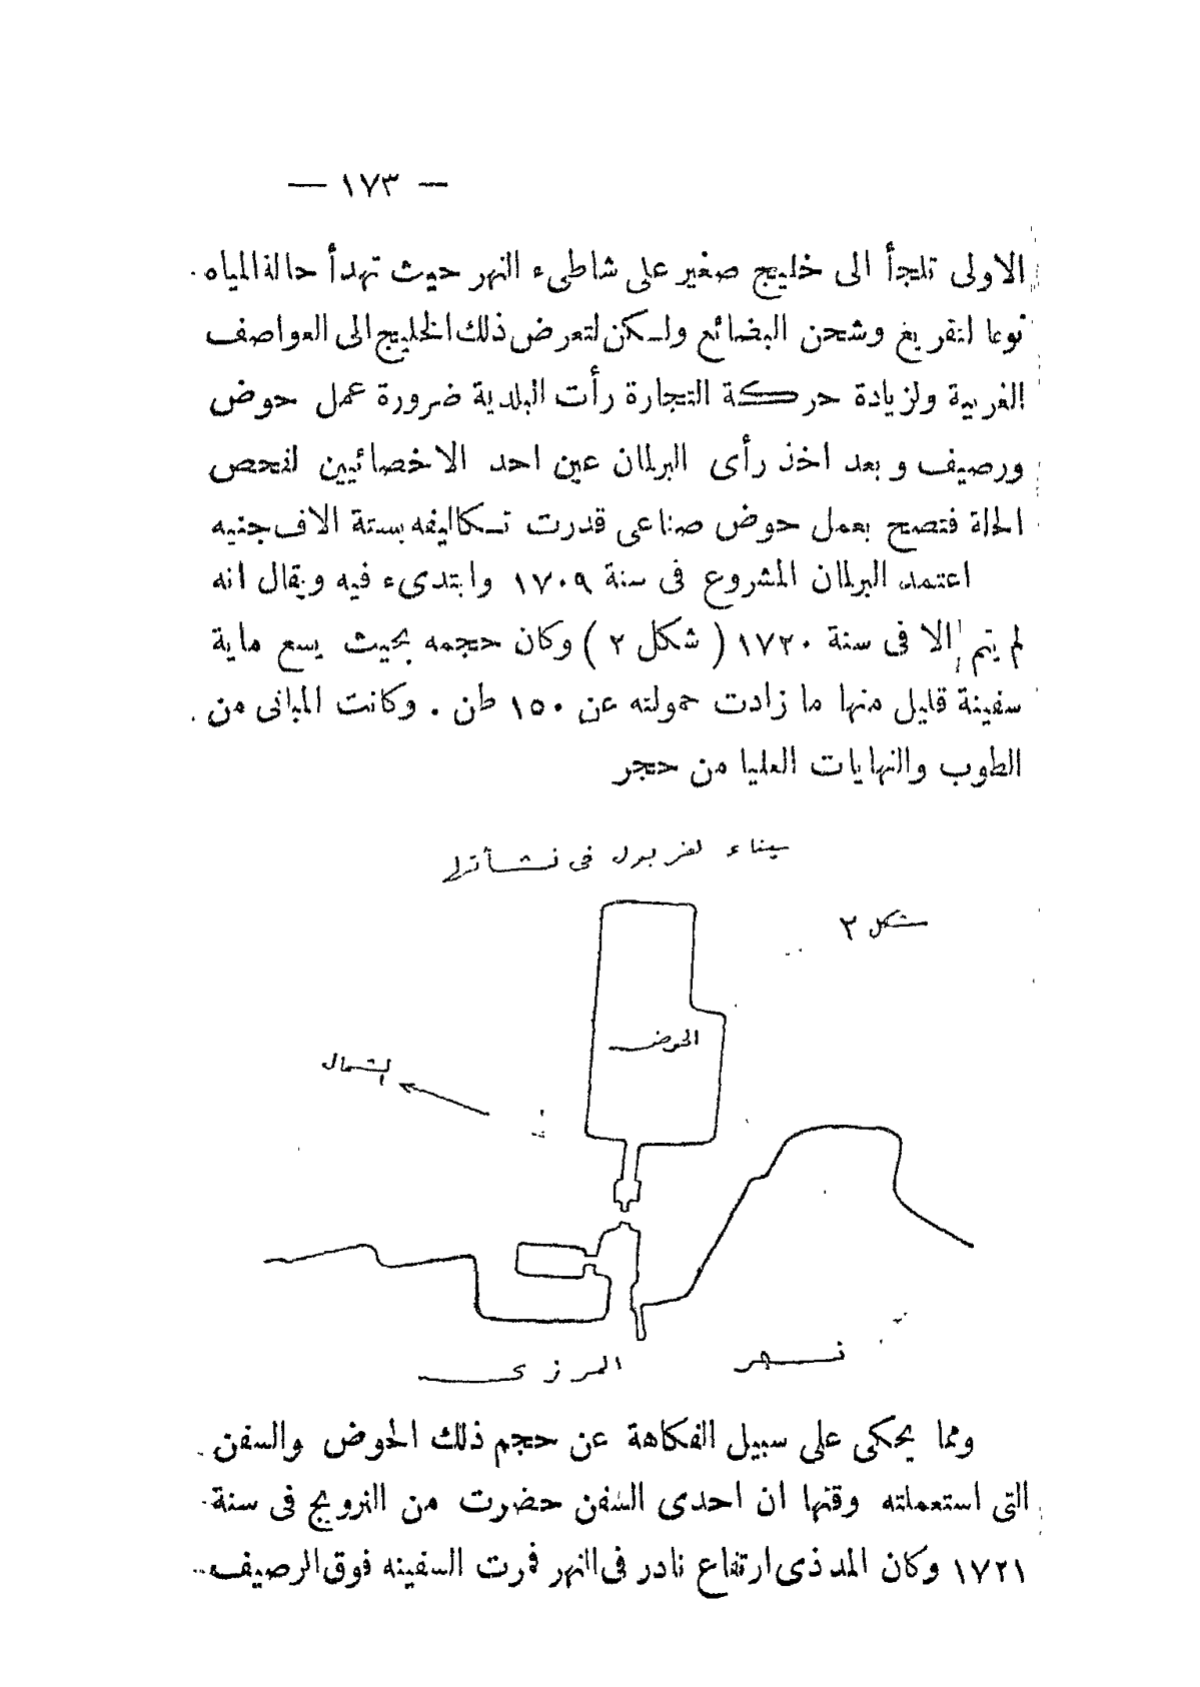 — ١٧٣ —
الاولى تلجأ الى خليج صغير على شاطىء النهر حيث تهدأ حالة المياه
نوعا لتفريغ وشحن البضائع ولكن لتعرض ذلك الخليج الى العواصف
الغربية ولزيادة حركة التجارة رأت البلدية ضرورة عمل حوض
ورصيف وبعد اخذ رأى البرلمان عين احد الاخصائيين لفحص
الحالة فنصح بعمل حوض صناعى قدرت تكاليفه بستة الاف جنيه
اعتمد البرلمان المشروع فى سنة ١٧٠٩ وابتدىء فيه ويقال انه
لم يتم الا فى سنة ١٧٢٠ ( شكل ٢ ) وكان حجمه بحيث يسع ماية
سفينة قليل منها ما زادت حمولته عن ١٥٠ طن . وكانت المبانى من
الطوب والنهايات العليا من حجر
ميناء لفربول فى نشأتها
شكل ٢
الحوض
الشمال
نهر
المرزى
ومما يحكى على سبيل الفكاهة عن حجم ذلك الحوض والسفن
التى استعملته وقتها ان احدى السفن حضرت من النرويج فى سنة
١٧٢١ وكان المد ذى ارتفاع نادر فى النهر فمرت السفينه فوق الرصيف